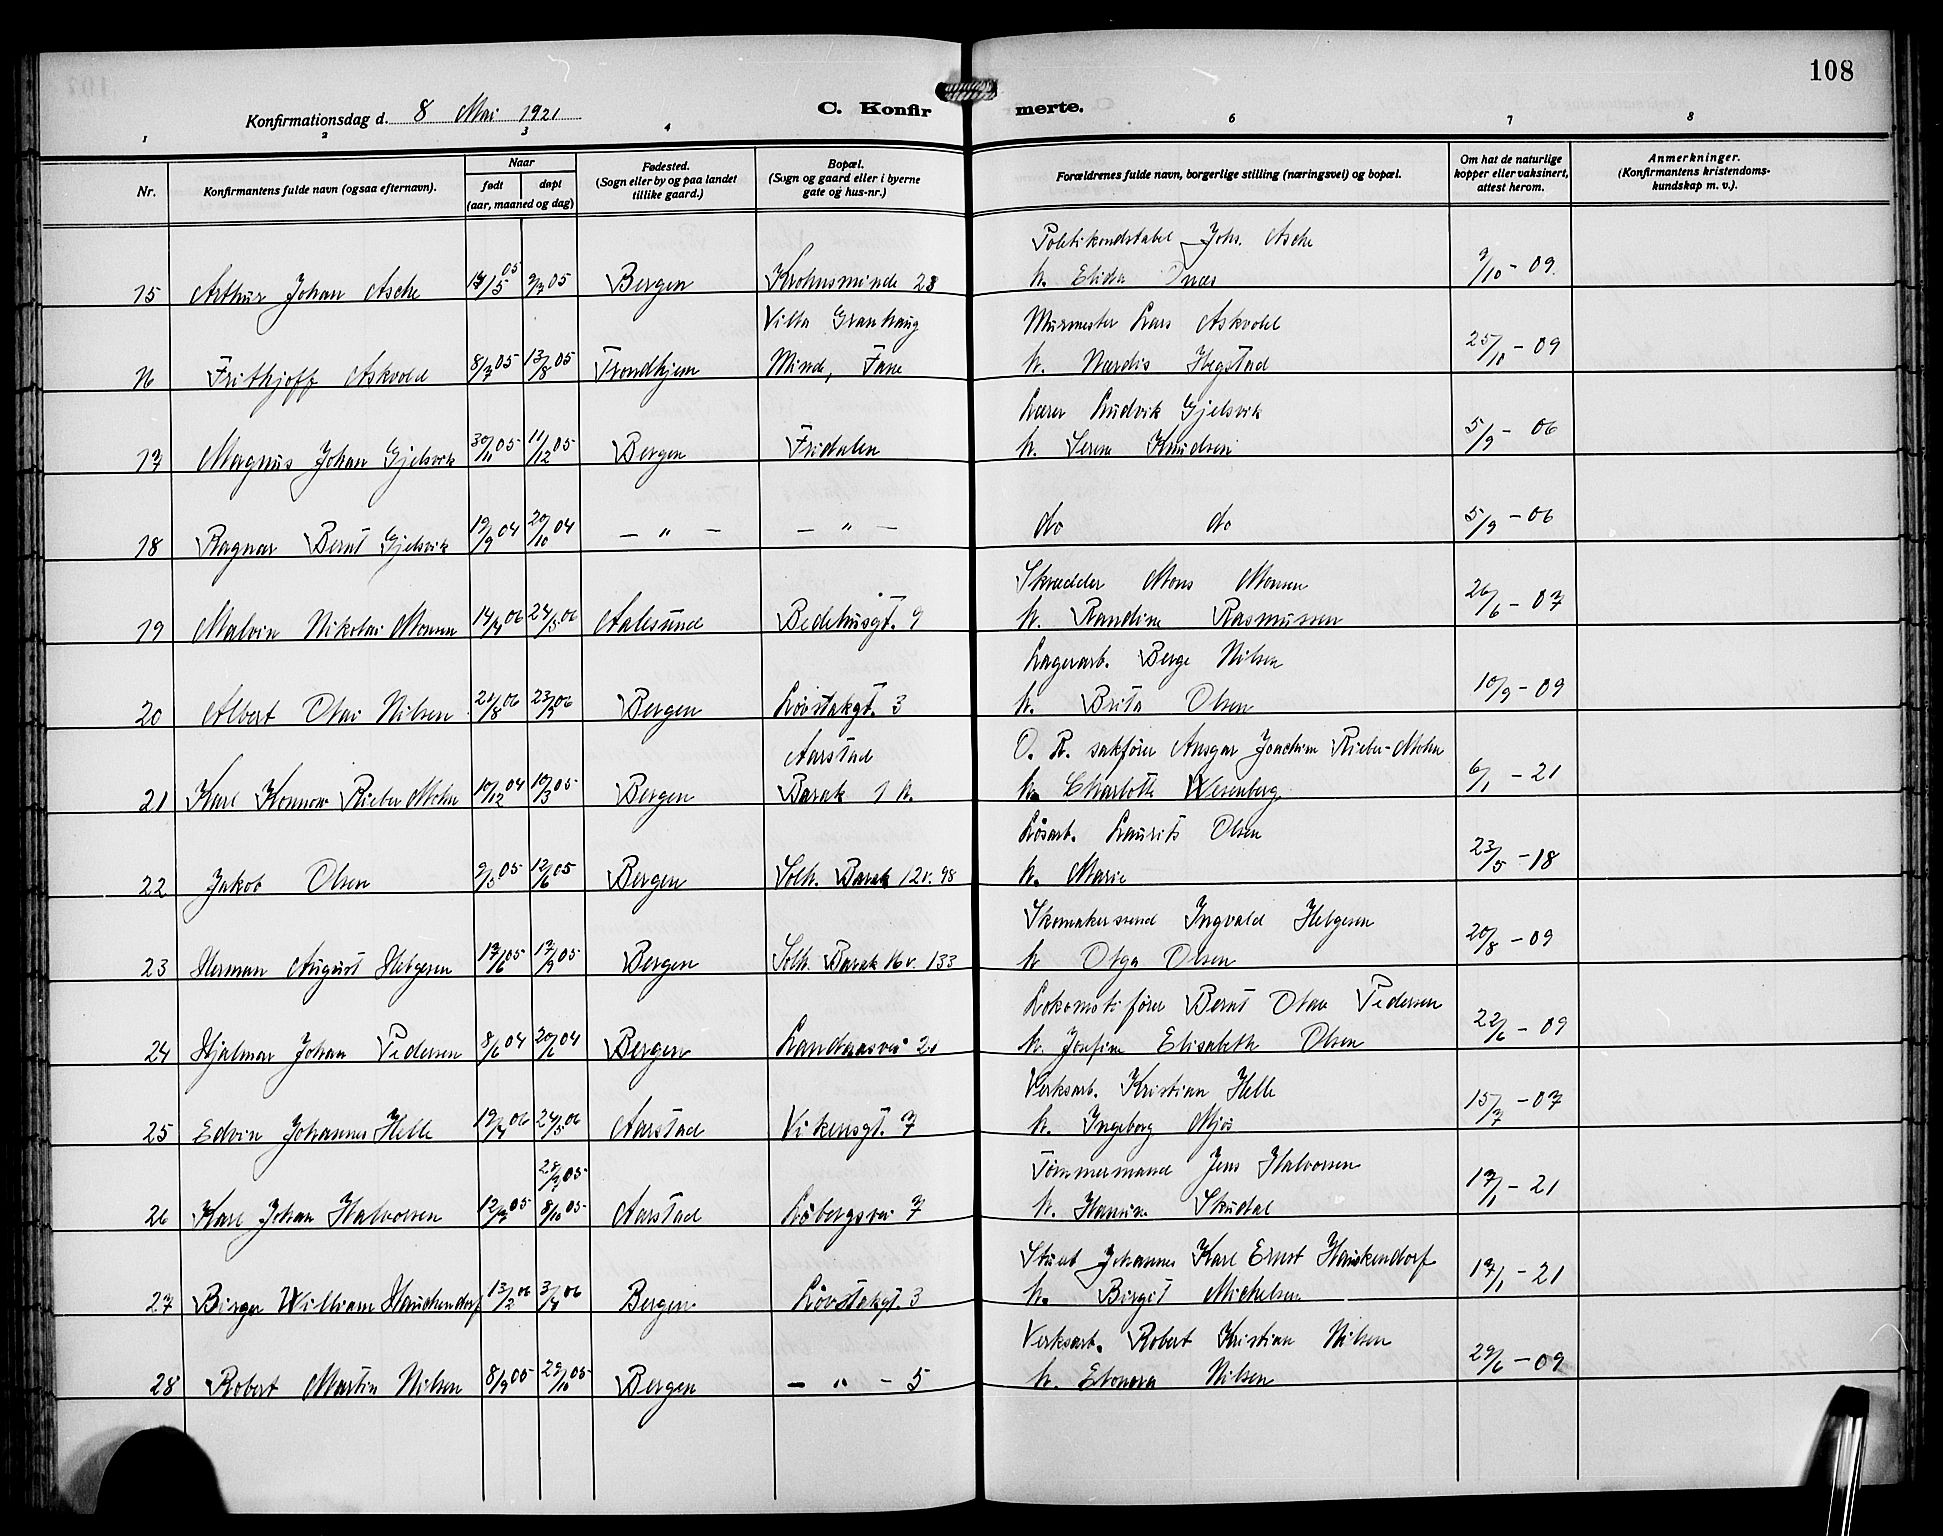 108
Konfirmationsdag d. 8 Mai 1921
C. Konfirmerte.
1 2 3 4 6 7 8
Nr.
Konfirmantens fulde navn (ogsaa efternavn).
Naar
født døpt
(aar, maaned og dag)
Fødested.
(Sogn eller by og paa landet
tillike gaard.)
Bopæl.
(Sogn og gaard eller i byerne
gate og hus-nr.)
Forældrenes fulde navn, borgerlige stilling (næringsvei) og bopæl.
Om hat de naturlige
kopper eller vaksinert,
attest herom.
Anmerkninger.
(Konfirmantens kristendoms-
kundskap m. v.).
Politikonstabel Johs. Asche
15 Arthur Johan Asche 17/5 05 2/7 05 Bergen Krohnsminde 28 h. Elida 9/10 - 09.
Villa Granhaug Murmester Lars Askvold
16 Frithjoff Askvold 8/7 05 13/8 05 Trondhjem Minde, Fane h. Nardis Hegstad 25/10 - 09
Lærer Ludvik Gjelsvik
17 Magnus Johan Gjelsvik 30/11 05 11/12 05 Bergen Fridalen h. Serine Knudsen 5/9 - 06
18 Ragnar Bernt Gjelsvik 19/9 04 20/10 04 - " - - " - do do 5/9 - 06
Skrædder Mons Monsen
19 Malvin Nikolai Monsen 14/4 06 24/5 06 Aalesund Bedehusgt. 9 h. Randine Rasmussen 26/6 - 07
Lagerarb. Berge Nilsen
20 Albert Olai Nilsen 21/8 06 23/9 06 Bergen Løvstakgt. 3 h. Brita Olsen 10/9 - 09
Aarstad O. R. sakfører Ansgar Joachim Rieber-Mohn
21 Karl Konow Rieber Mohn 10/12 04 19/3 05 Bergen Barak 1 h. h. Charlotte Wesenberg 6/1 - 21
Løsarb. Laurits Olsen
22 Jakob Olsen 9/5 05 12/6 05 Bergen Solh. Barak 12 v. 98 h. Marie 23/5 - 18
Skomakersvend Ingvald Helgesen
23 Herman August Helgesen 17/6 05 17/9 05 Bergen Solh. Barak 16 v. 133 h Olga Olsen 20/8 - 09
Lokomotivfører Bernt Olau Pedersen
24 Hjalmar Johan Pedersen 8/6 04 20/6 04 Bergen Landaasvei 21 h. Josefine Elisabeth Olsen 22/6 - 09
Verksarb. Kristian Helle
25 Edvin Johannes Helle 19/4 06 24/5 06 Aarstad Vikensgt. 7 h. Ingeborg Mjøs 15/7 - 07
28/7 05 Tømmermand Jens Halvorsen
26 Karl Johan Halvorsen 12/7 05 8/10 05 Aarstad Løbergsvei 7 h. Hansine Skudal 17/1 - 21
Johannes Karl Ernst Hauskendorf
27 Birger William Hauckendorf 13/2 06 3/4 06 Bergen Løvstakgt. 3 h. Birgit Michelsen 17/1 - 21
Verksarb. Robert Kristian Nilsen
28 Robert Martin Nilsen 8/9 05 29/10 05 Bergen - " - 5 h. Elonora Nilsen 29/6 - 09